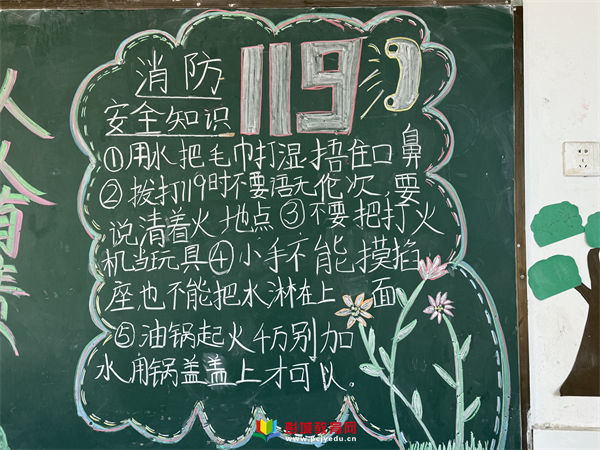 消防 119
安全知识
①用水把毛巾打湿捂住口鼻
②拨打119时不要语无伦次,要
说清着火地点③不要把打火
机当玩具④小手不能摸插
座也不能把水淋在上面
⑤油锅起火千万别加
水用锅盖盖上才可以。
彭城教育网
www.pcjyedu.cn